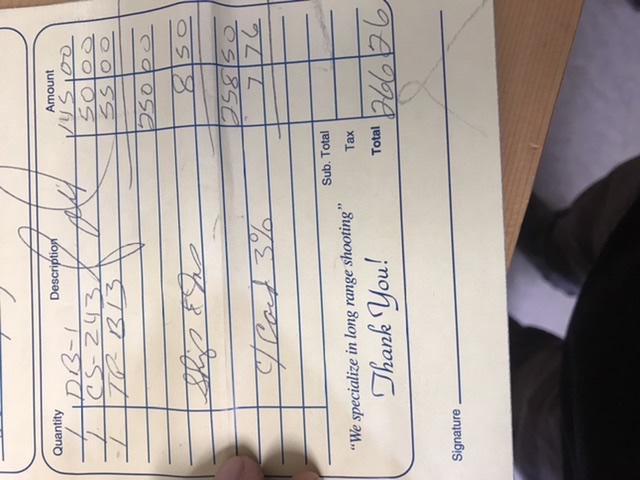 Quantity Description Amount
1 DB-1 145 00
1 CS-243 50 00
1 TP-B13 55 00
250 00
Ship & Ins 8 50
258 50
C/Card 3% 7 76
Sub. Total
Tax
Total 266 26
"We specialize in long range shooting"
Thank You!
Signature